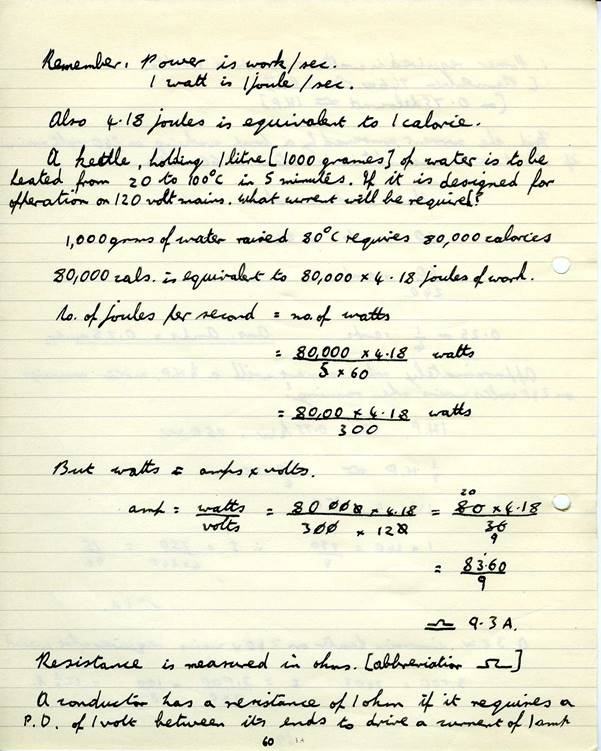 Remember, Power is work/sec.
1 watt is 1 joule/sec.
Also 4.18 joules is equivalent to 1 calorie.
A kettle, holding 1 litre [1000 grames] of water is to be
heated from 20 to 100°C in 5 minutes. If it is designed for
opperation on 120 volt mains. what current will be required?
1,000 grms of water raised 80°C requires 80,000 calories
80,000 cals. is equivalent to 80,000 x 4.18 joules of work.
No. of joules per second = no. of watts
= 80,000 x 4.18 / 5 x 60 watts
= 80,00 x 4.18 / 300 watts
But watts = amps x volts.
amp = watts / volts = 80 000 x 4.18 / 300 x 120 = 80 20 x 4.18 / 36 9
= 83.60 / 9
≏ 9.3 A.
Resistance is measured in ohms. [abbreviation Ω]
A conductor has a resistance of 1 ohm if it requires a
P.D. of 1 volt between its ends to drive a current of 1 amp
60